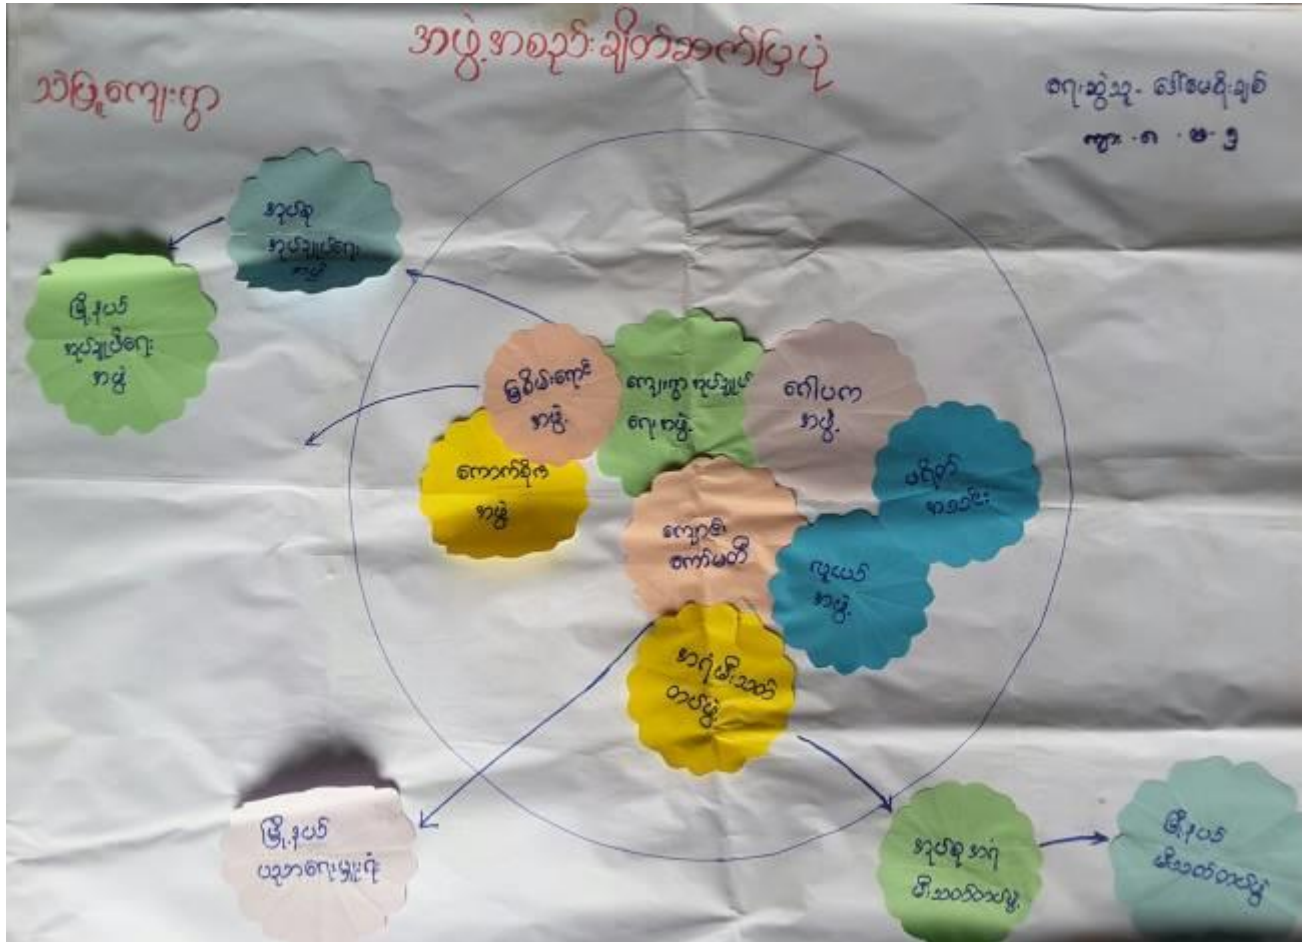 အဖွဲ့အစည်းချိတ်ဆက်ပြပုံ
သဲဖြူကျေးရွာ
ရေးဆွဲသူ- ဒေါ်မေစိုးချစ်
အုပ်စု
အုပ်ချုပ်ရေး
အဖွဲ့
မြို့နယ်
အုပ်ချုပ်ရေး
အဖွဲ့
မြစိမ်းရောင်
အဖွဲ့
ကျေးရွာအုပ်ချုပ်
ရေးအဖွဲ့
ဂေါပက
အဖွဲ့
ကောက်စိုက်
အဖွဲ့
ပရိတ်
အသင်း
ကျောင်း
ကော်မတီ
လူငယ်
အဖွဲ့
အရံမီးသတ်
တပ်ဖွဲ့
မြို့နယ်
ပညာရေးမှူးရုံး
အုပ်စုအရံ
မီးသတ်တပ်ဖွဲ့
မြို့နယ်
မီးသတ်တပ်ဖွဲ့